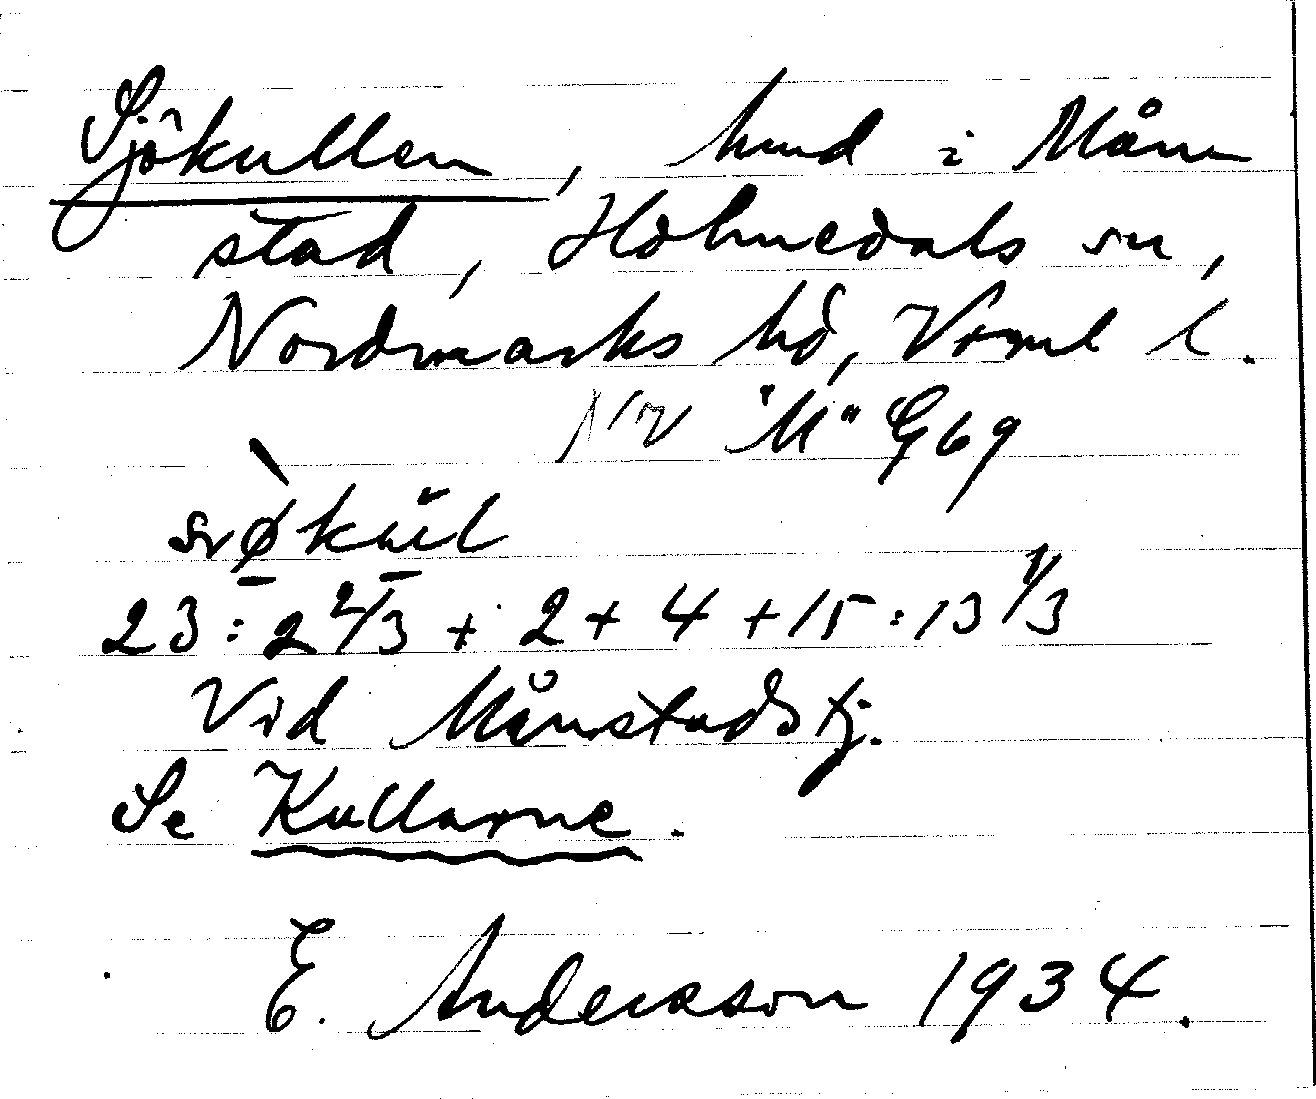 Sjökullen, hmd i Mån
stad, Holmedals sn,
Nordmarks hd, Vrml l.
NV "M" G69
23: 2 2/3 + 2 + 4 + 15: 13 1/3
Vid Månstadstj.
Se Kullarne.
E. Andersson 1934.